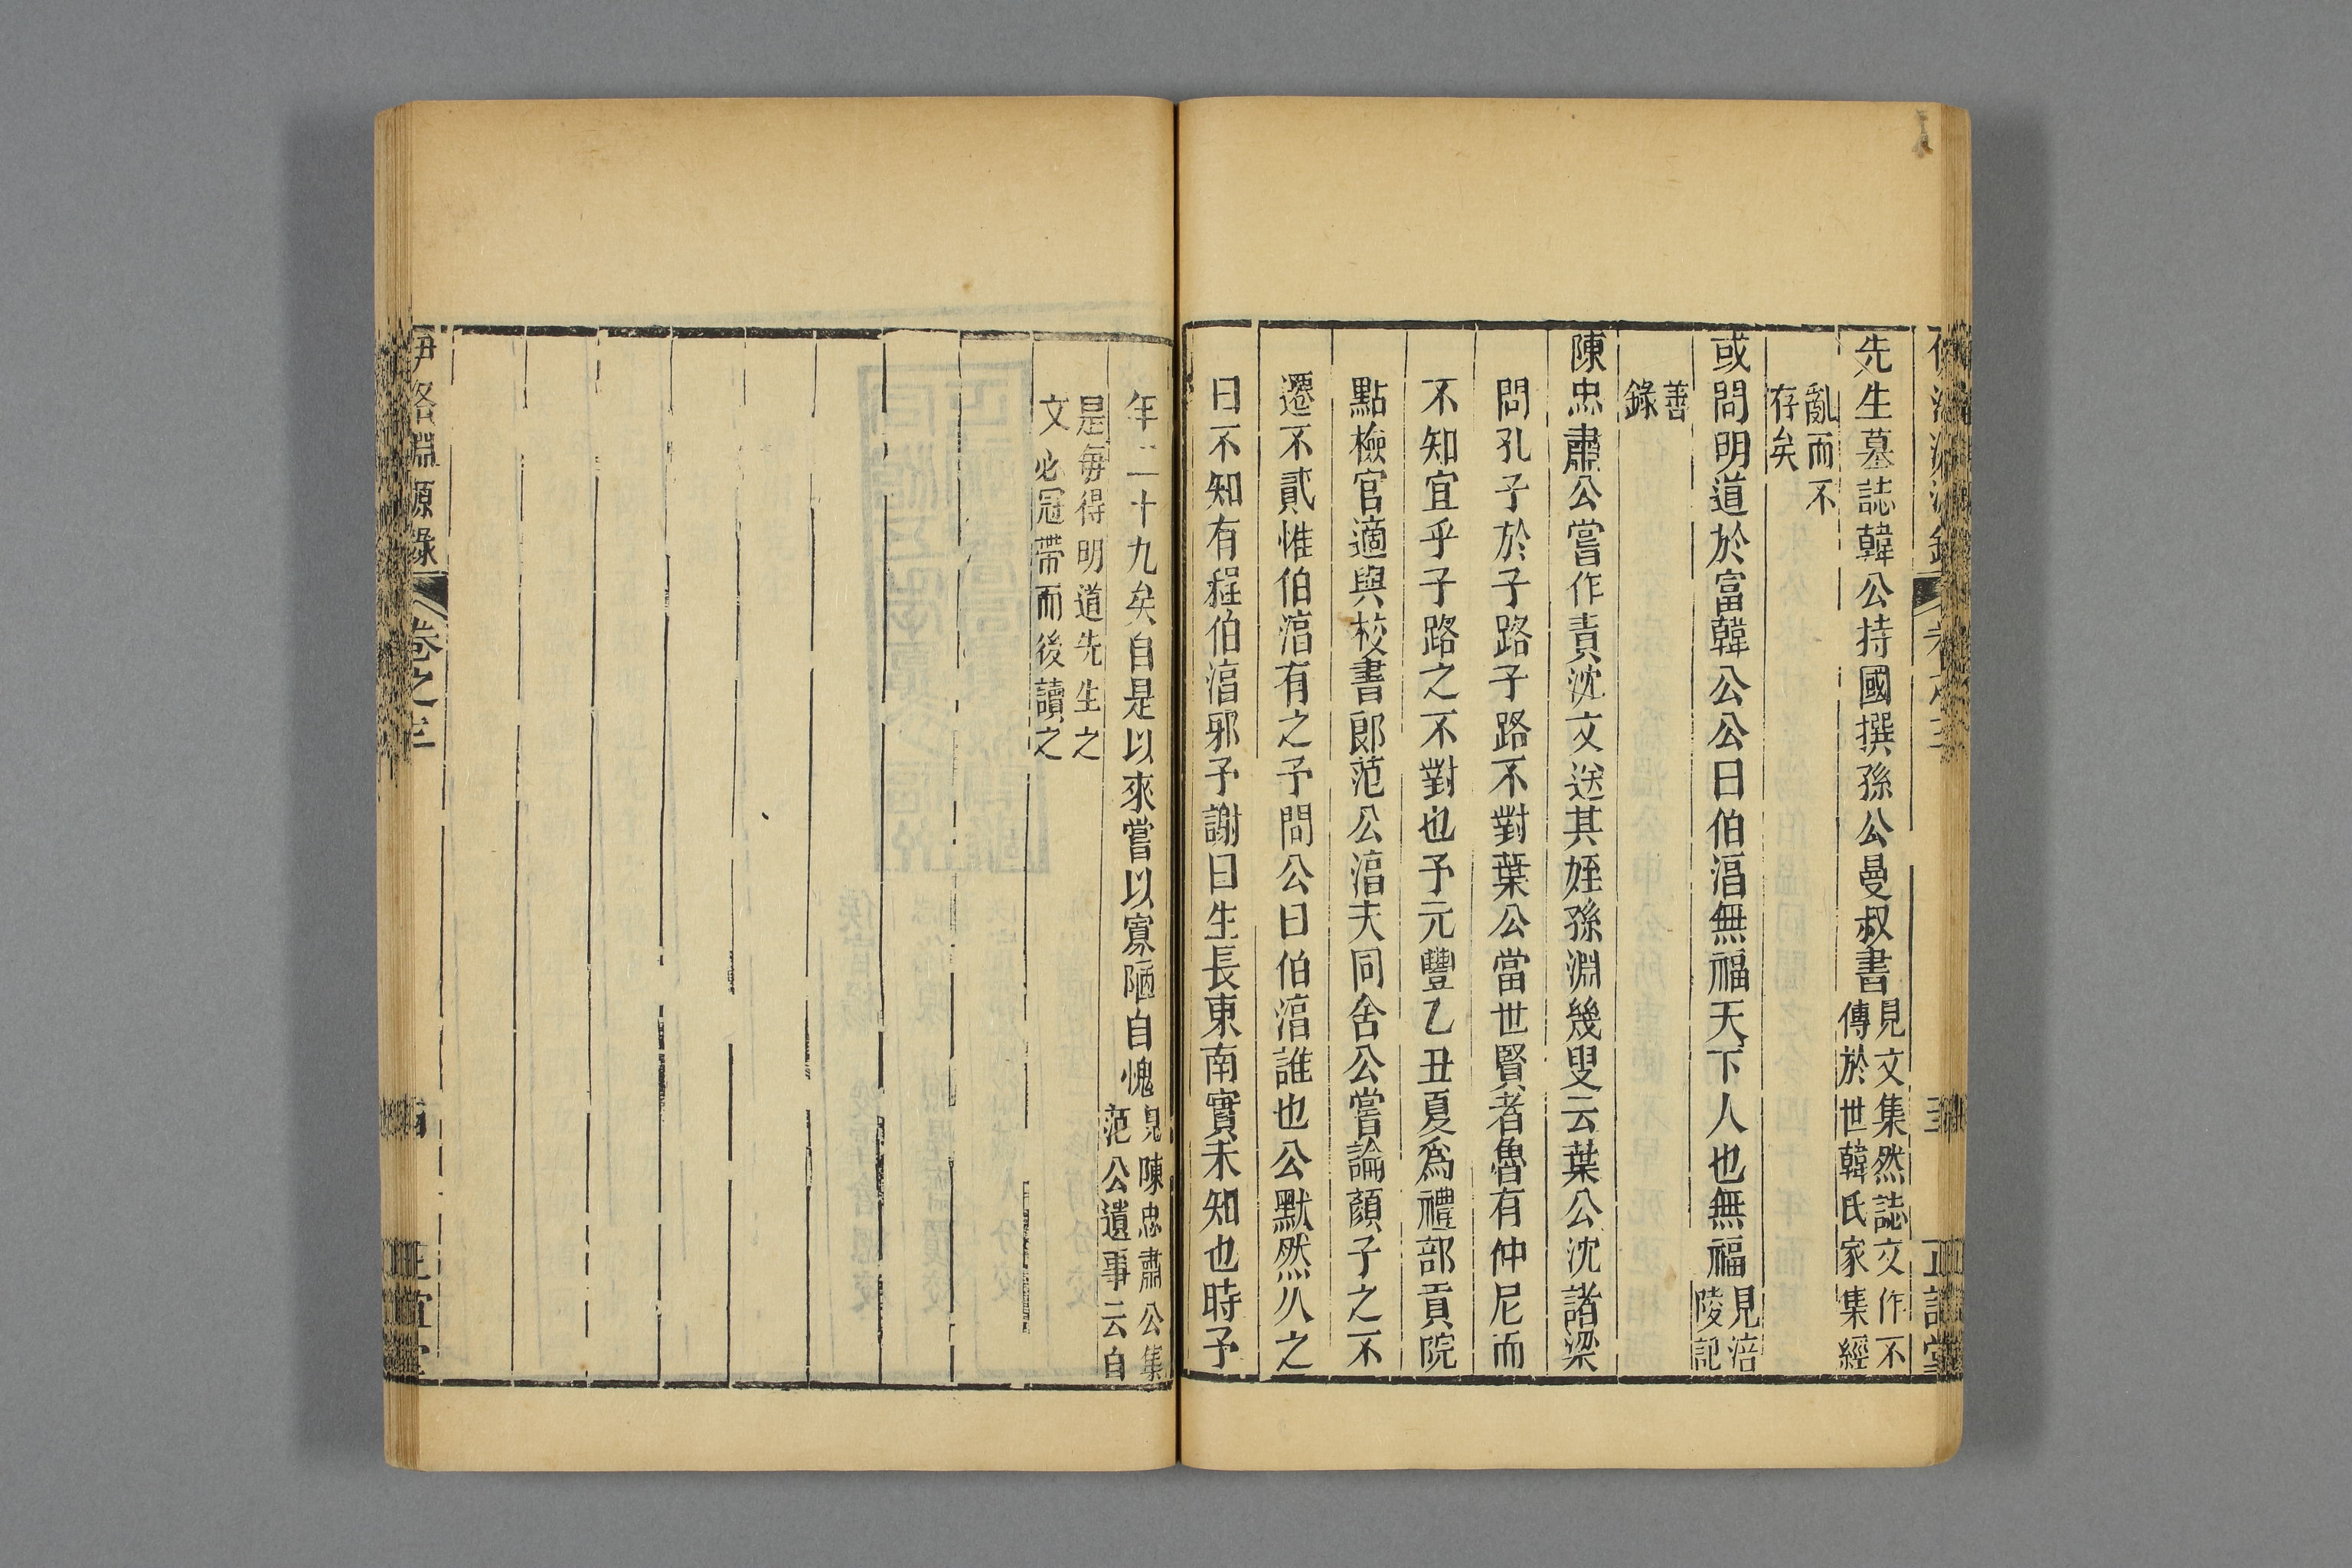 先生墓誌韓公持國撰孫公曼叔書見文集然誌文作不傳於世韓氏家集經
亂而不存矣
或問明道於富韓公公曰伯淳無福天下人也無福見涪陵記
善錄
陳忠肅公嘗作責沈文送其姪孫淵幾叟云葉公沈諸梁
問孔子於子路子路不對葉公當世賢者魯有仲尼而
不知宜乎子路之不對也予元豐乙丑夏為禮部貢院
點檢官適與校書郎范公淳夫同舍公嘗論顏子之不
遷不貳惟伯淳有之予問公曰伯淳誰也公默然久之
曰不知有程伯淳邪予謝曰生長東南實未知也時予
年二十九矣自是以來嘗以寡陋自愧見陳忠肅公集范公遺事云自
是每得明道先生之文必冠帶而後讀之
伊洛淵源錄
卷之三